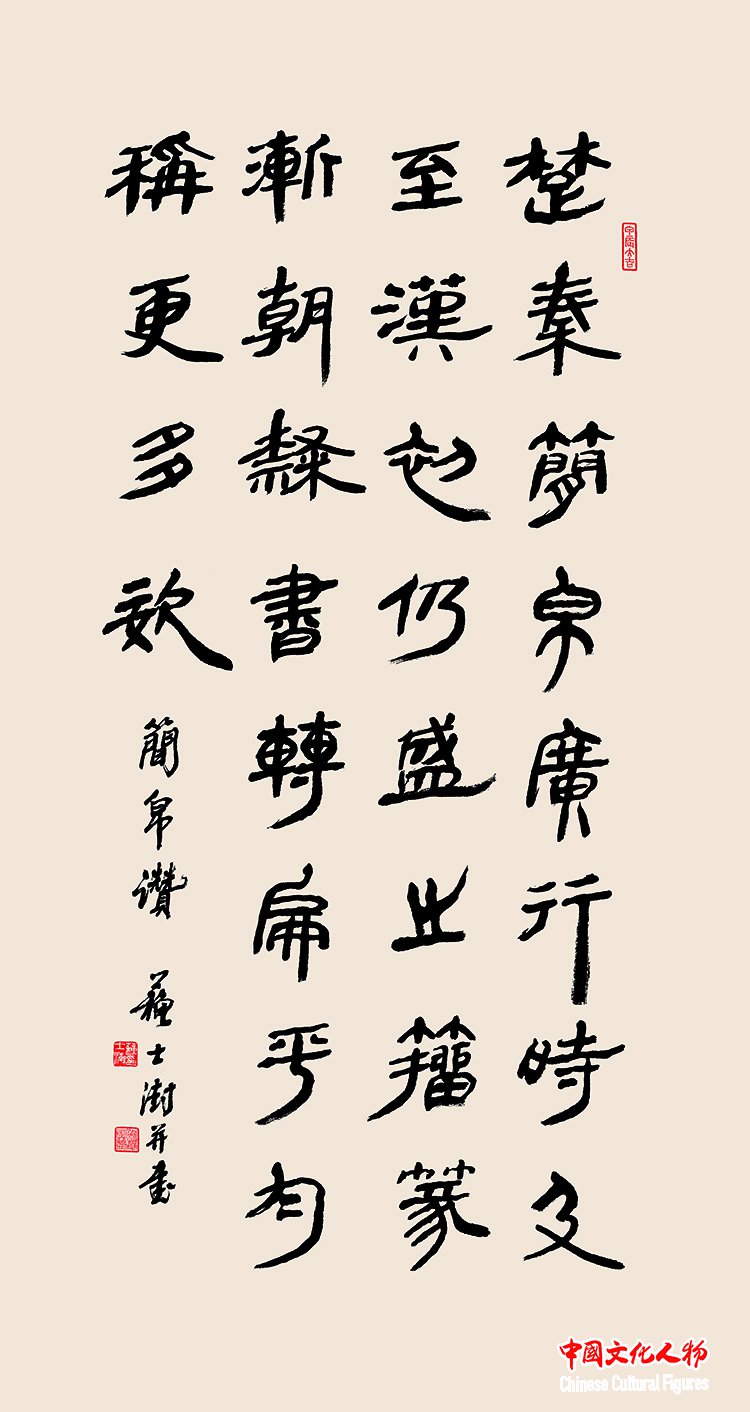 楚秦簡帛廣行時及
至漢初仍盛之籀篆
漸朝隸書轉扁平勻
稱更多姿
簡帛讚 蘇士澍并書
甲辰大吉
中國文化人物
Chinese Cultural Figures